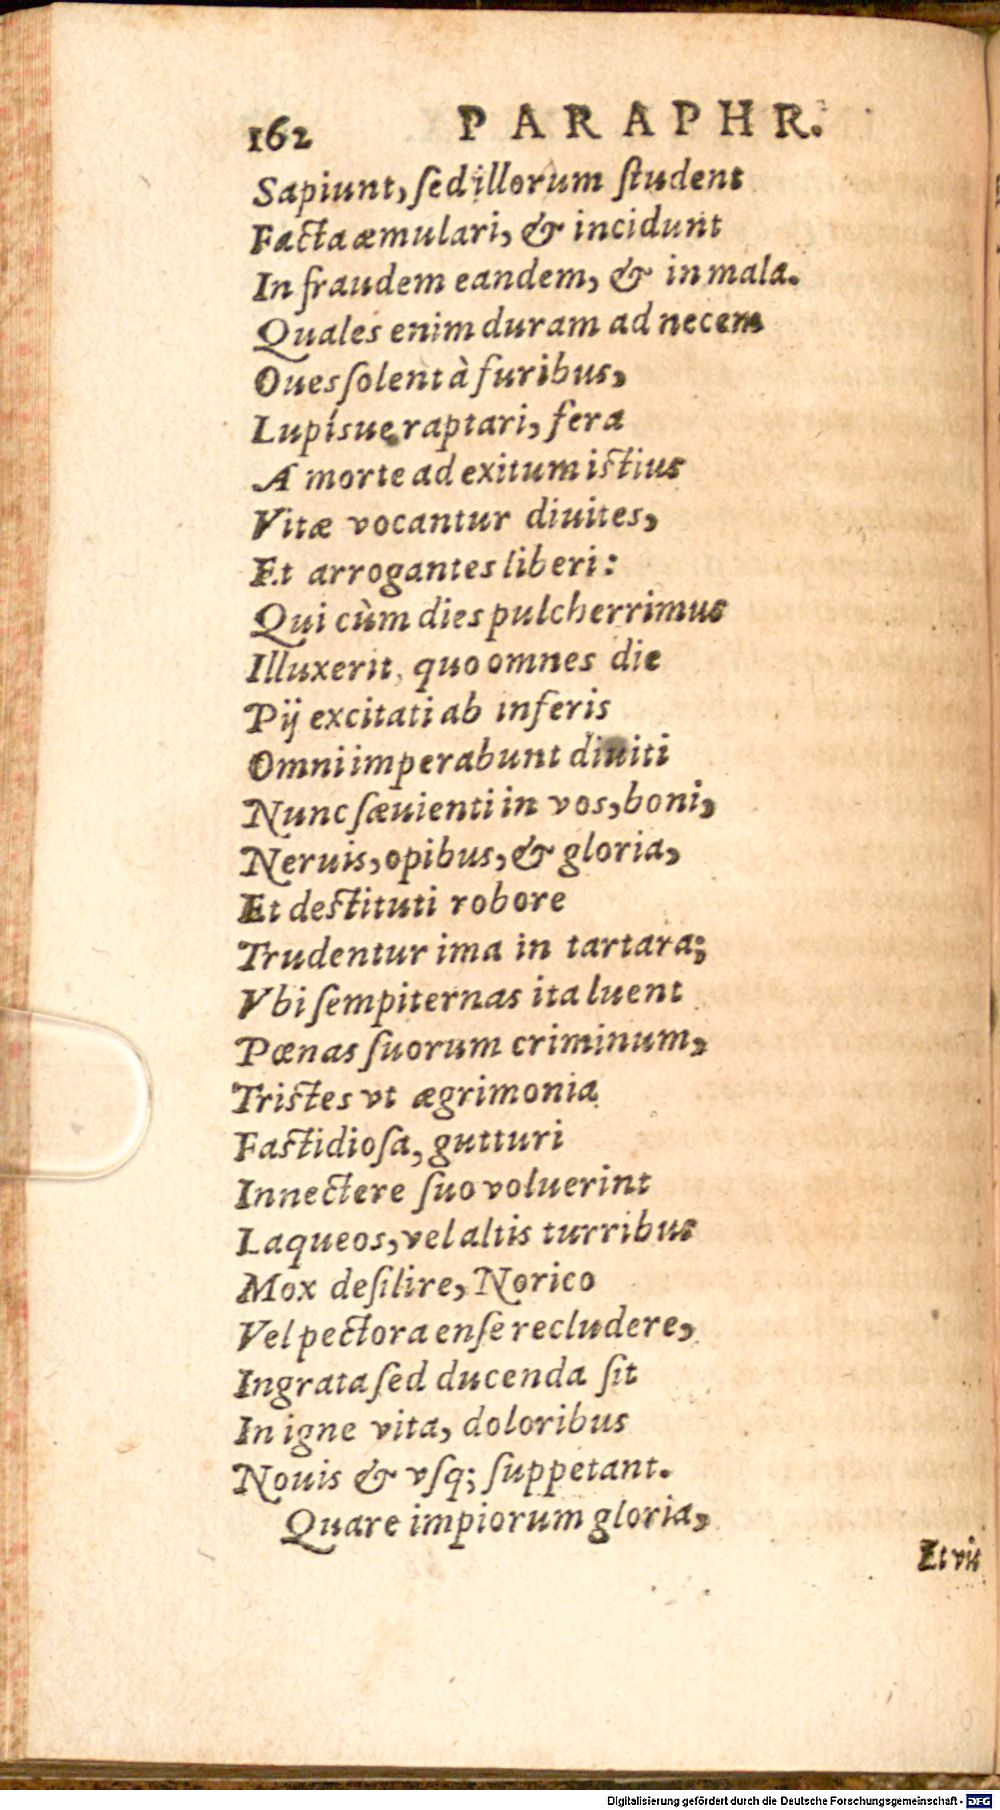 162 PARAPHR.
Sapiunt, ſed illorum ſtudent
Facta æmulari, & incidunt
In fraudem eandem, & in mala.
Quales enim duram ad necem
Oues ſolent à furibus,
Lupísue raptari, fera
A morte ad exitum iſtius
Vitæ vocantur diuites,
Et arrogantes liberi:
Qui cùm dies pulcherrimus
Illuxerit, quo omnes die
Pij excitati ab inferis
Omni imperabunt diuiti
Nunc ſæuienti in vos, boni,
Neruis, opibus, & gloria,
Et deſtituti robore
Trudentur ima in tartara;
Vbi ſempiternas ita luent
Pœnas ſuorum criminum,
Triſtes vt ægrimonia
Faſtidioſa, gutturi
Innectere ſuo voluerint
Laqueos, vel altis turribus
Mox deſilire, Norico
Vel pectora enſe recludere,
Ingrata ſed ducenda ſit
In igne vita, doloribus
Nouis & vſq; ſuppetant.
Quare impiorum gloria,
Et vit
Digitalisierung gefördert durch die Deutsche Forschungsgemeinschaft - DFG